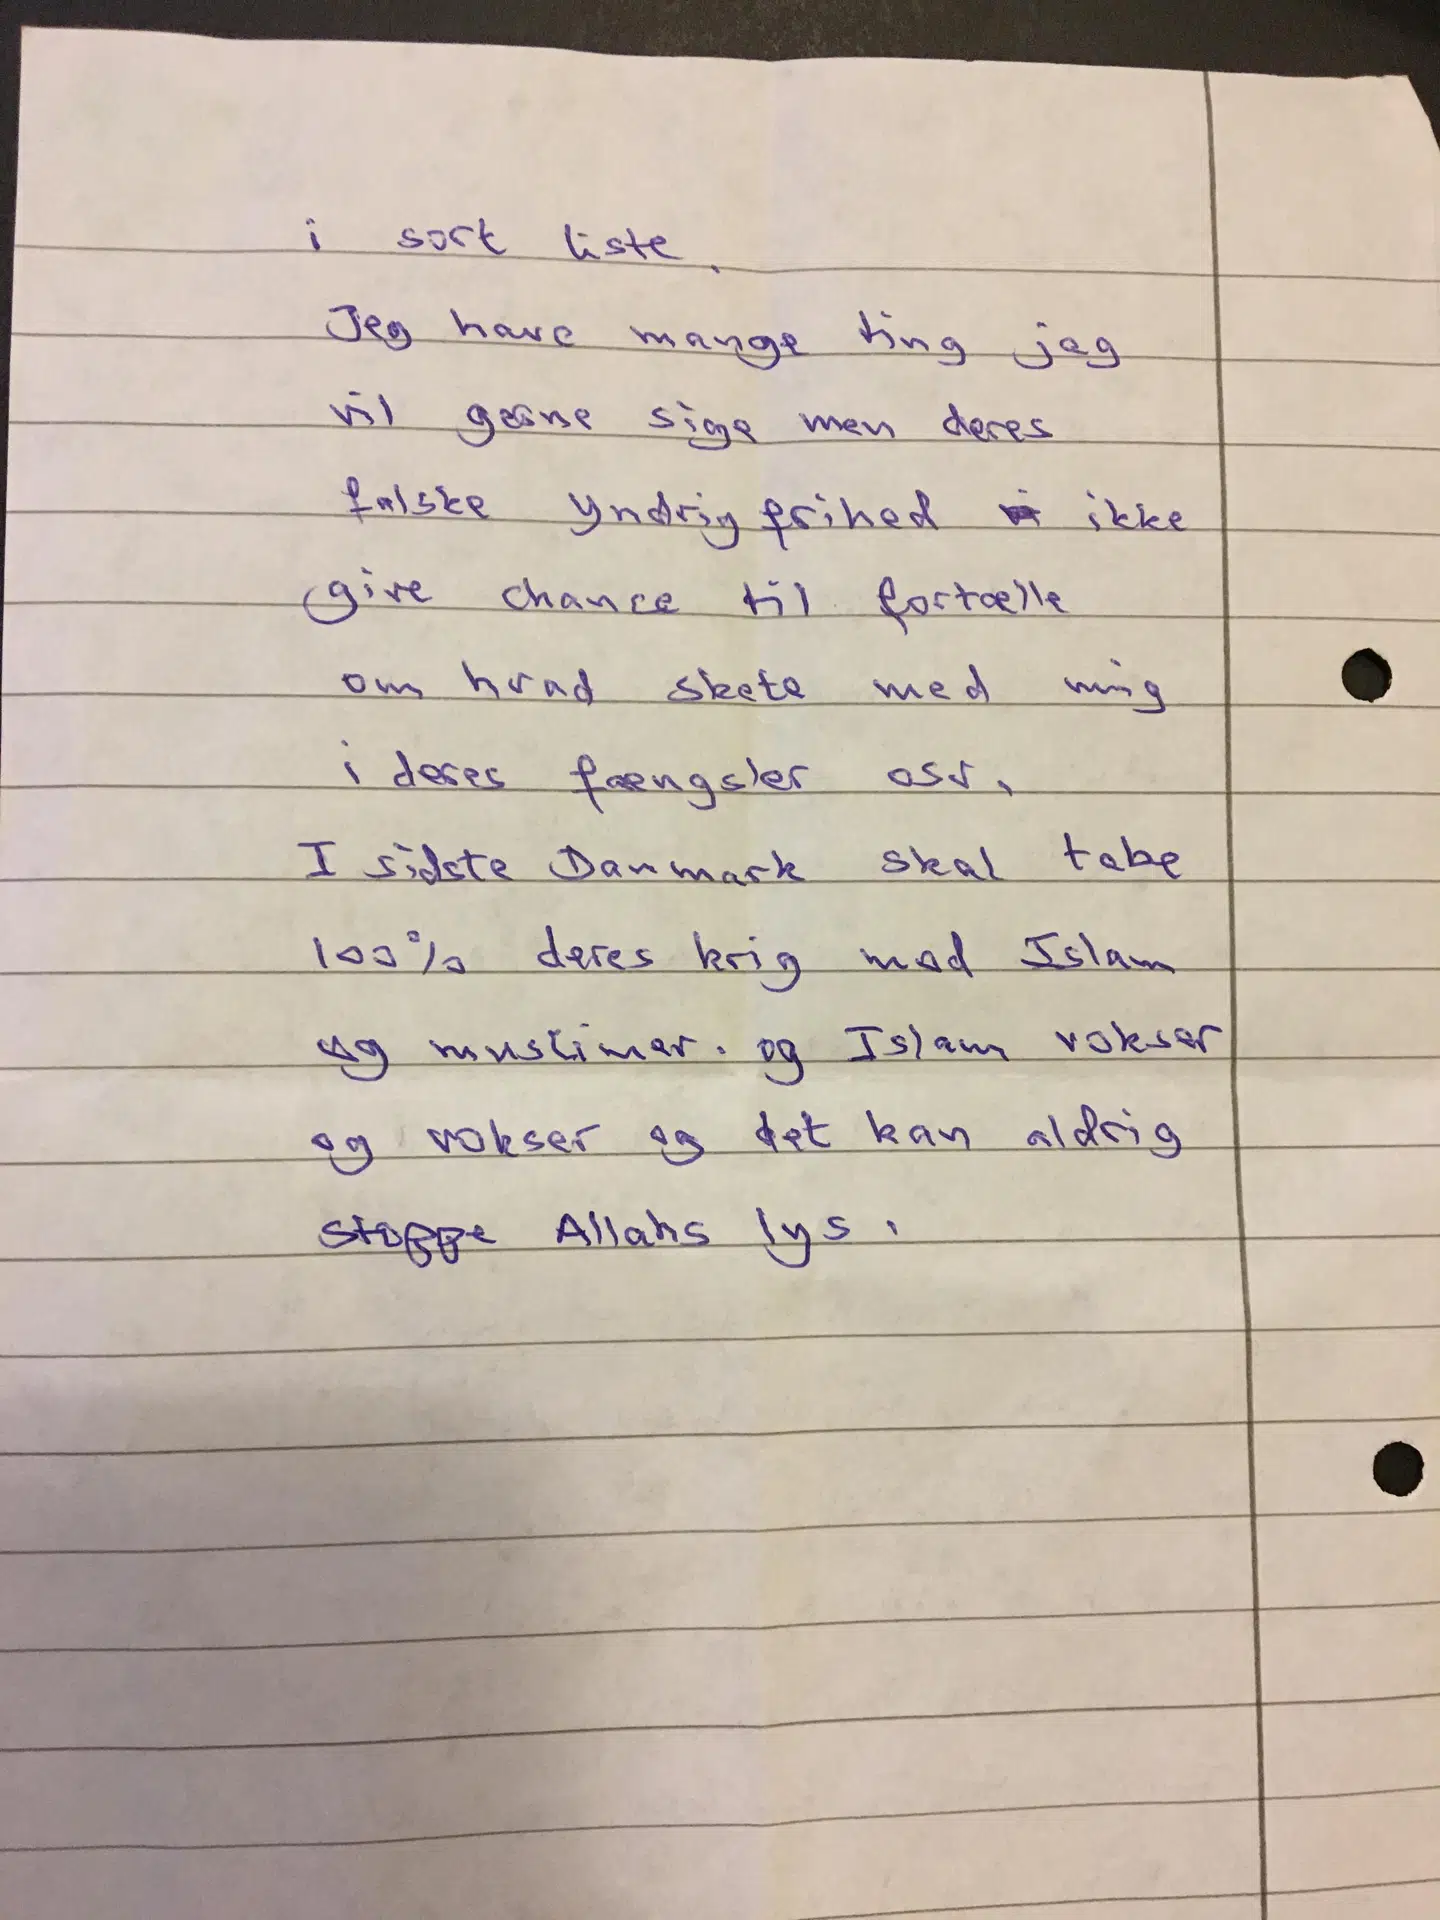 i sort liste.
Jeg have mange ting jeg
vil gerne sige men deres
falske yndrig frihed ikke
give chance til fortælle
om hvad skete med mig
i deres fængsler osv.
I sidste Danmark skal tabe
100% deres krig mod Islam
og muslimer. og Islam vokser
og vokser og det kan aldrig
stoppe Allahs lys.